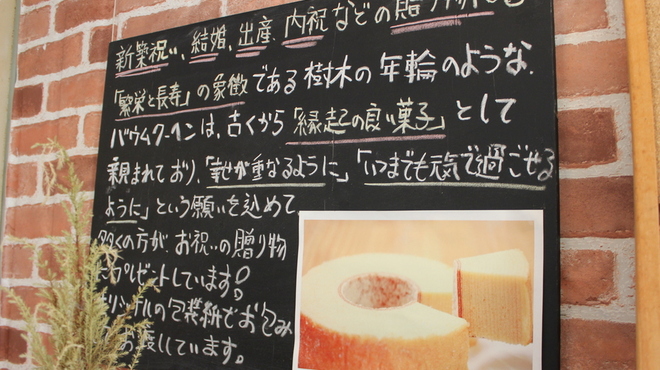 新築祝い、結婚、出産、内祝などの贈り物にも
「繁栄と長寿」の象徴である樹木の年輪のような、
バウムクーヘンは、古くから「縁起の良い菓子」として
親しまれており、「幸せが重なるように」「いつまでも元気で過ごせる
ように」という願いを込めて
多くの方が、お祝いの贈り物
にプレゼントしています!
オリジナルの包装紙でお包み
お渡しています。